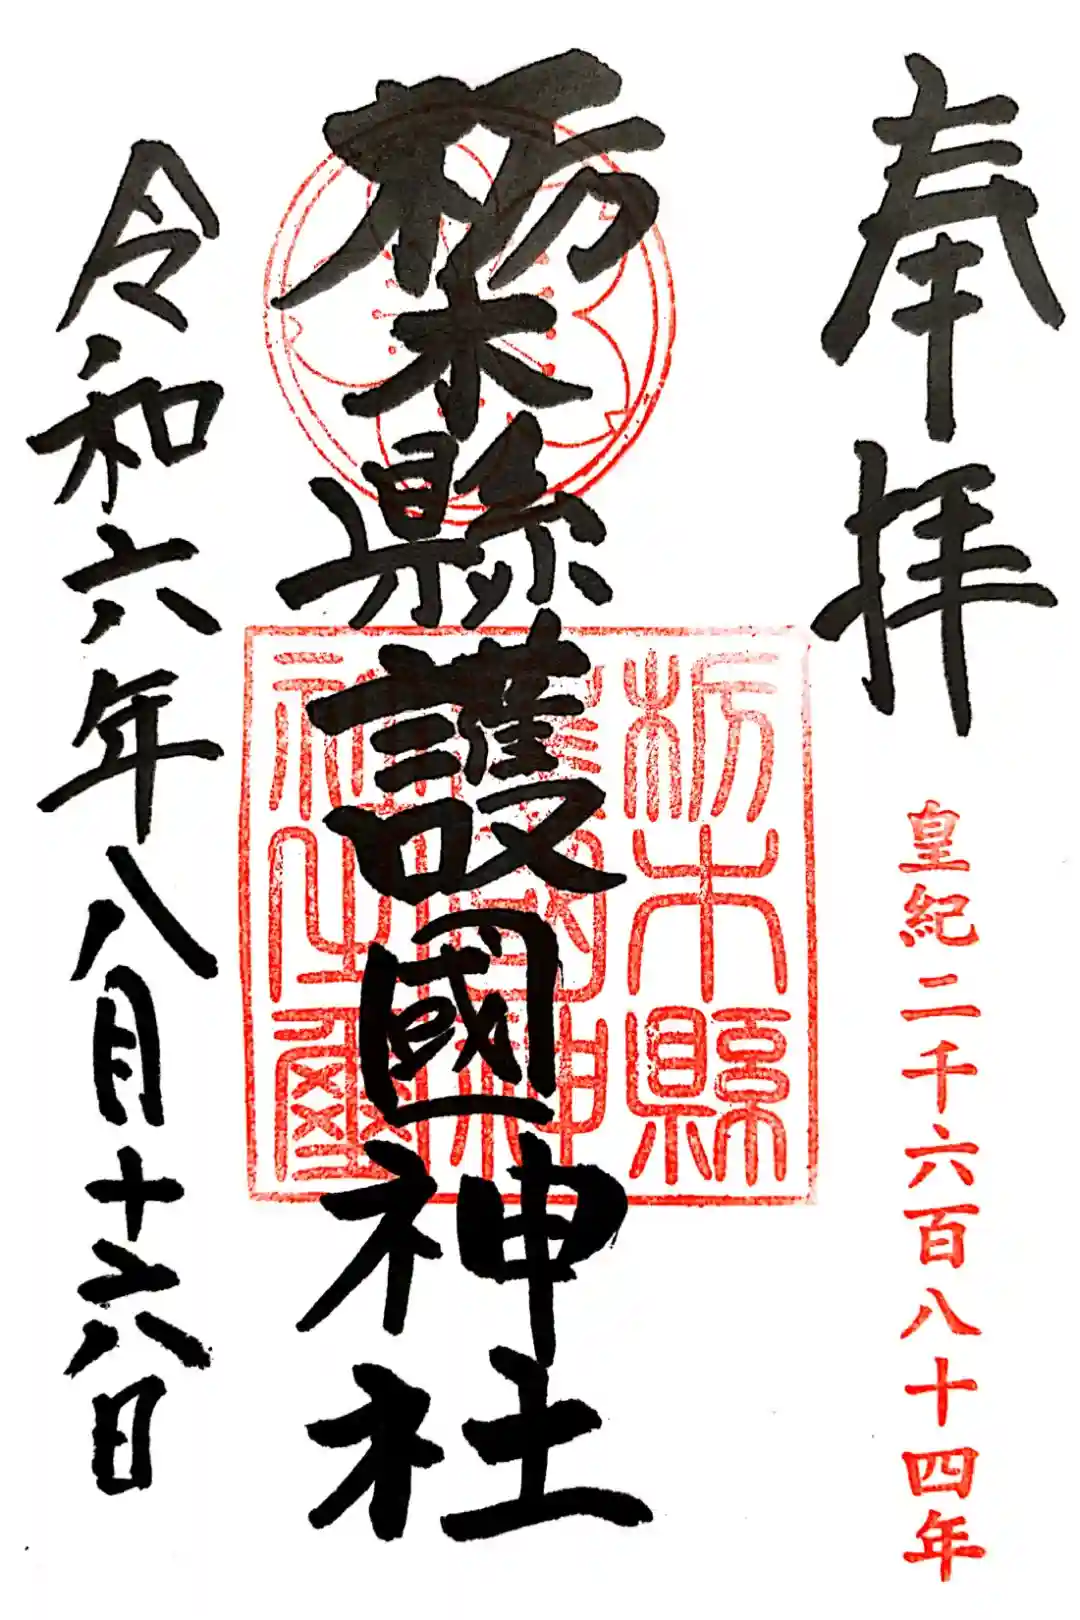 奉拝
皇紀二千六百八十四年
栃木縣護國神社
栃木縣
令和六年八月十六日